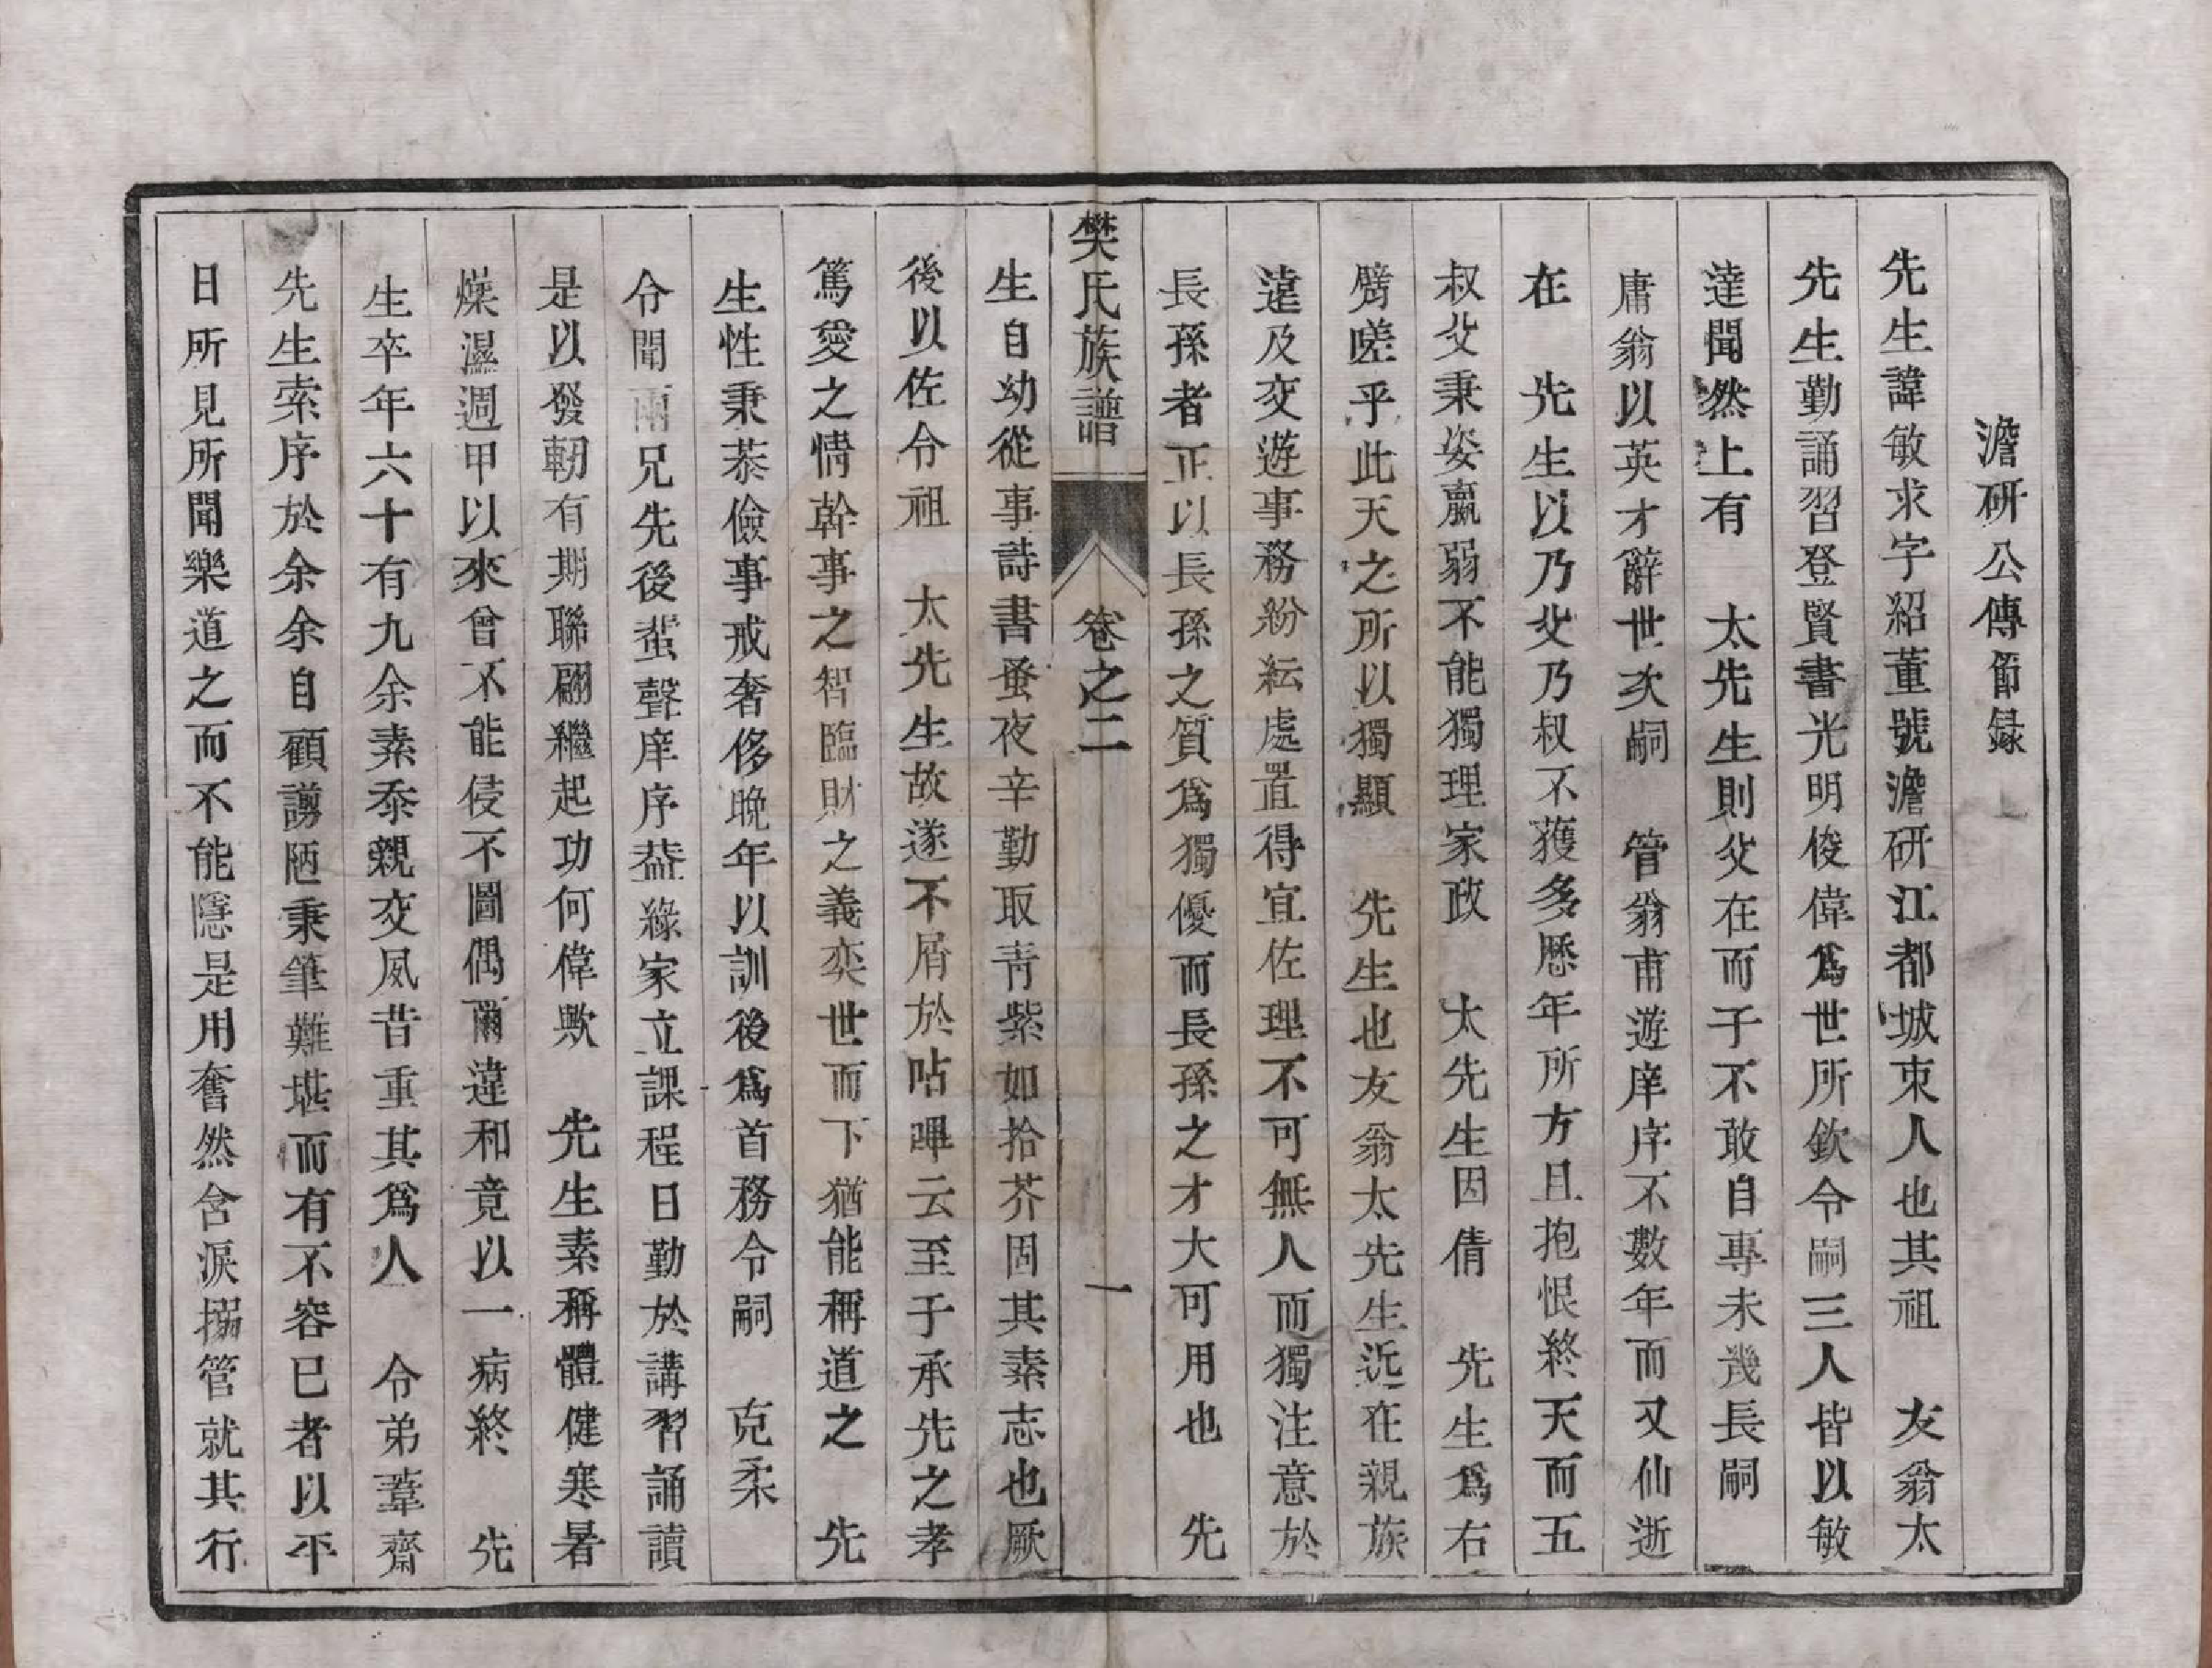 澹研公傳節録
先生諱敏求字紹董號澹研江都城東人也其祖　友翁太
先生勤誦習登賢書光明俊偉爲世所欽令嗣三人皆以敏
達聞然上有　太先生則父在而子不敢自專未幾長嗣
庸翁以英才辭世次嗣　管翁甫遊庠序不數年而又仙逝
在　先生以乃父乃叔不獲多歷年所方且抱恨終天而五
叔父秉姿羸弱不能獨理家政　太先生因倩　先生爲右
臂嗟乎此天之所以獨顯　先生也友翁太先生近在親族
遠及交遊事務紛紜處置得宜佐理不可無人而獨注意於
長孫者正以長孫之質爲獨優而長孫之才大可用也　先
樊氏族譜　卷之二　一
生自幼從事詩書蚤夜辛勤取青紫如拾芥固其素志也厥
後以佐令祖　太先生故遂不屑於呫嗶云至于承先之孝
篤愛之情幹事之智臨財之義奕世而下猶能稱道之　先
生性秉恭儉事戒奢侈晚年以訓後爲首務令嗣　克柔
令聞兩兄先後蜚聲庠序葢緣家立課程日勤於講習誦讀
是以發軔有期聯翩繼起功何偉歟　先生素稱體健寒暑
燥濕週甲以來曾不能侵不圖偶爾違和竟以一病終　先
生卒年六十有九余素忝親交夙昔重其爲人　令弟葦齋
先生索序於余余自顧謭陋秉筆難堪而有不容已者以平
日所見所聞樂道之而不能隱是用奮然含淚搦管就其行